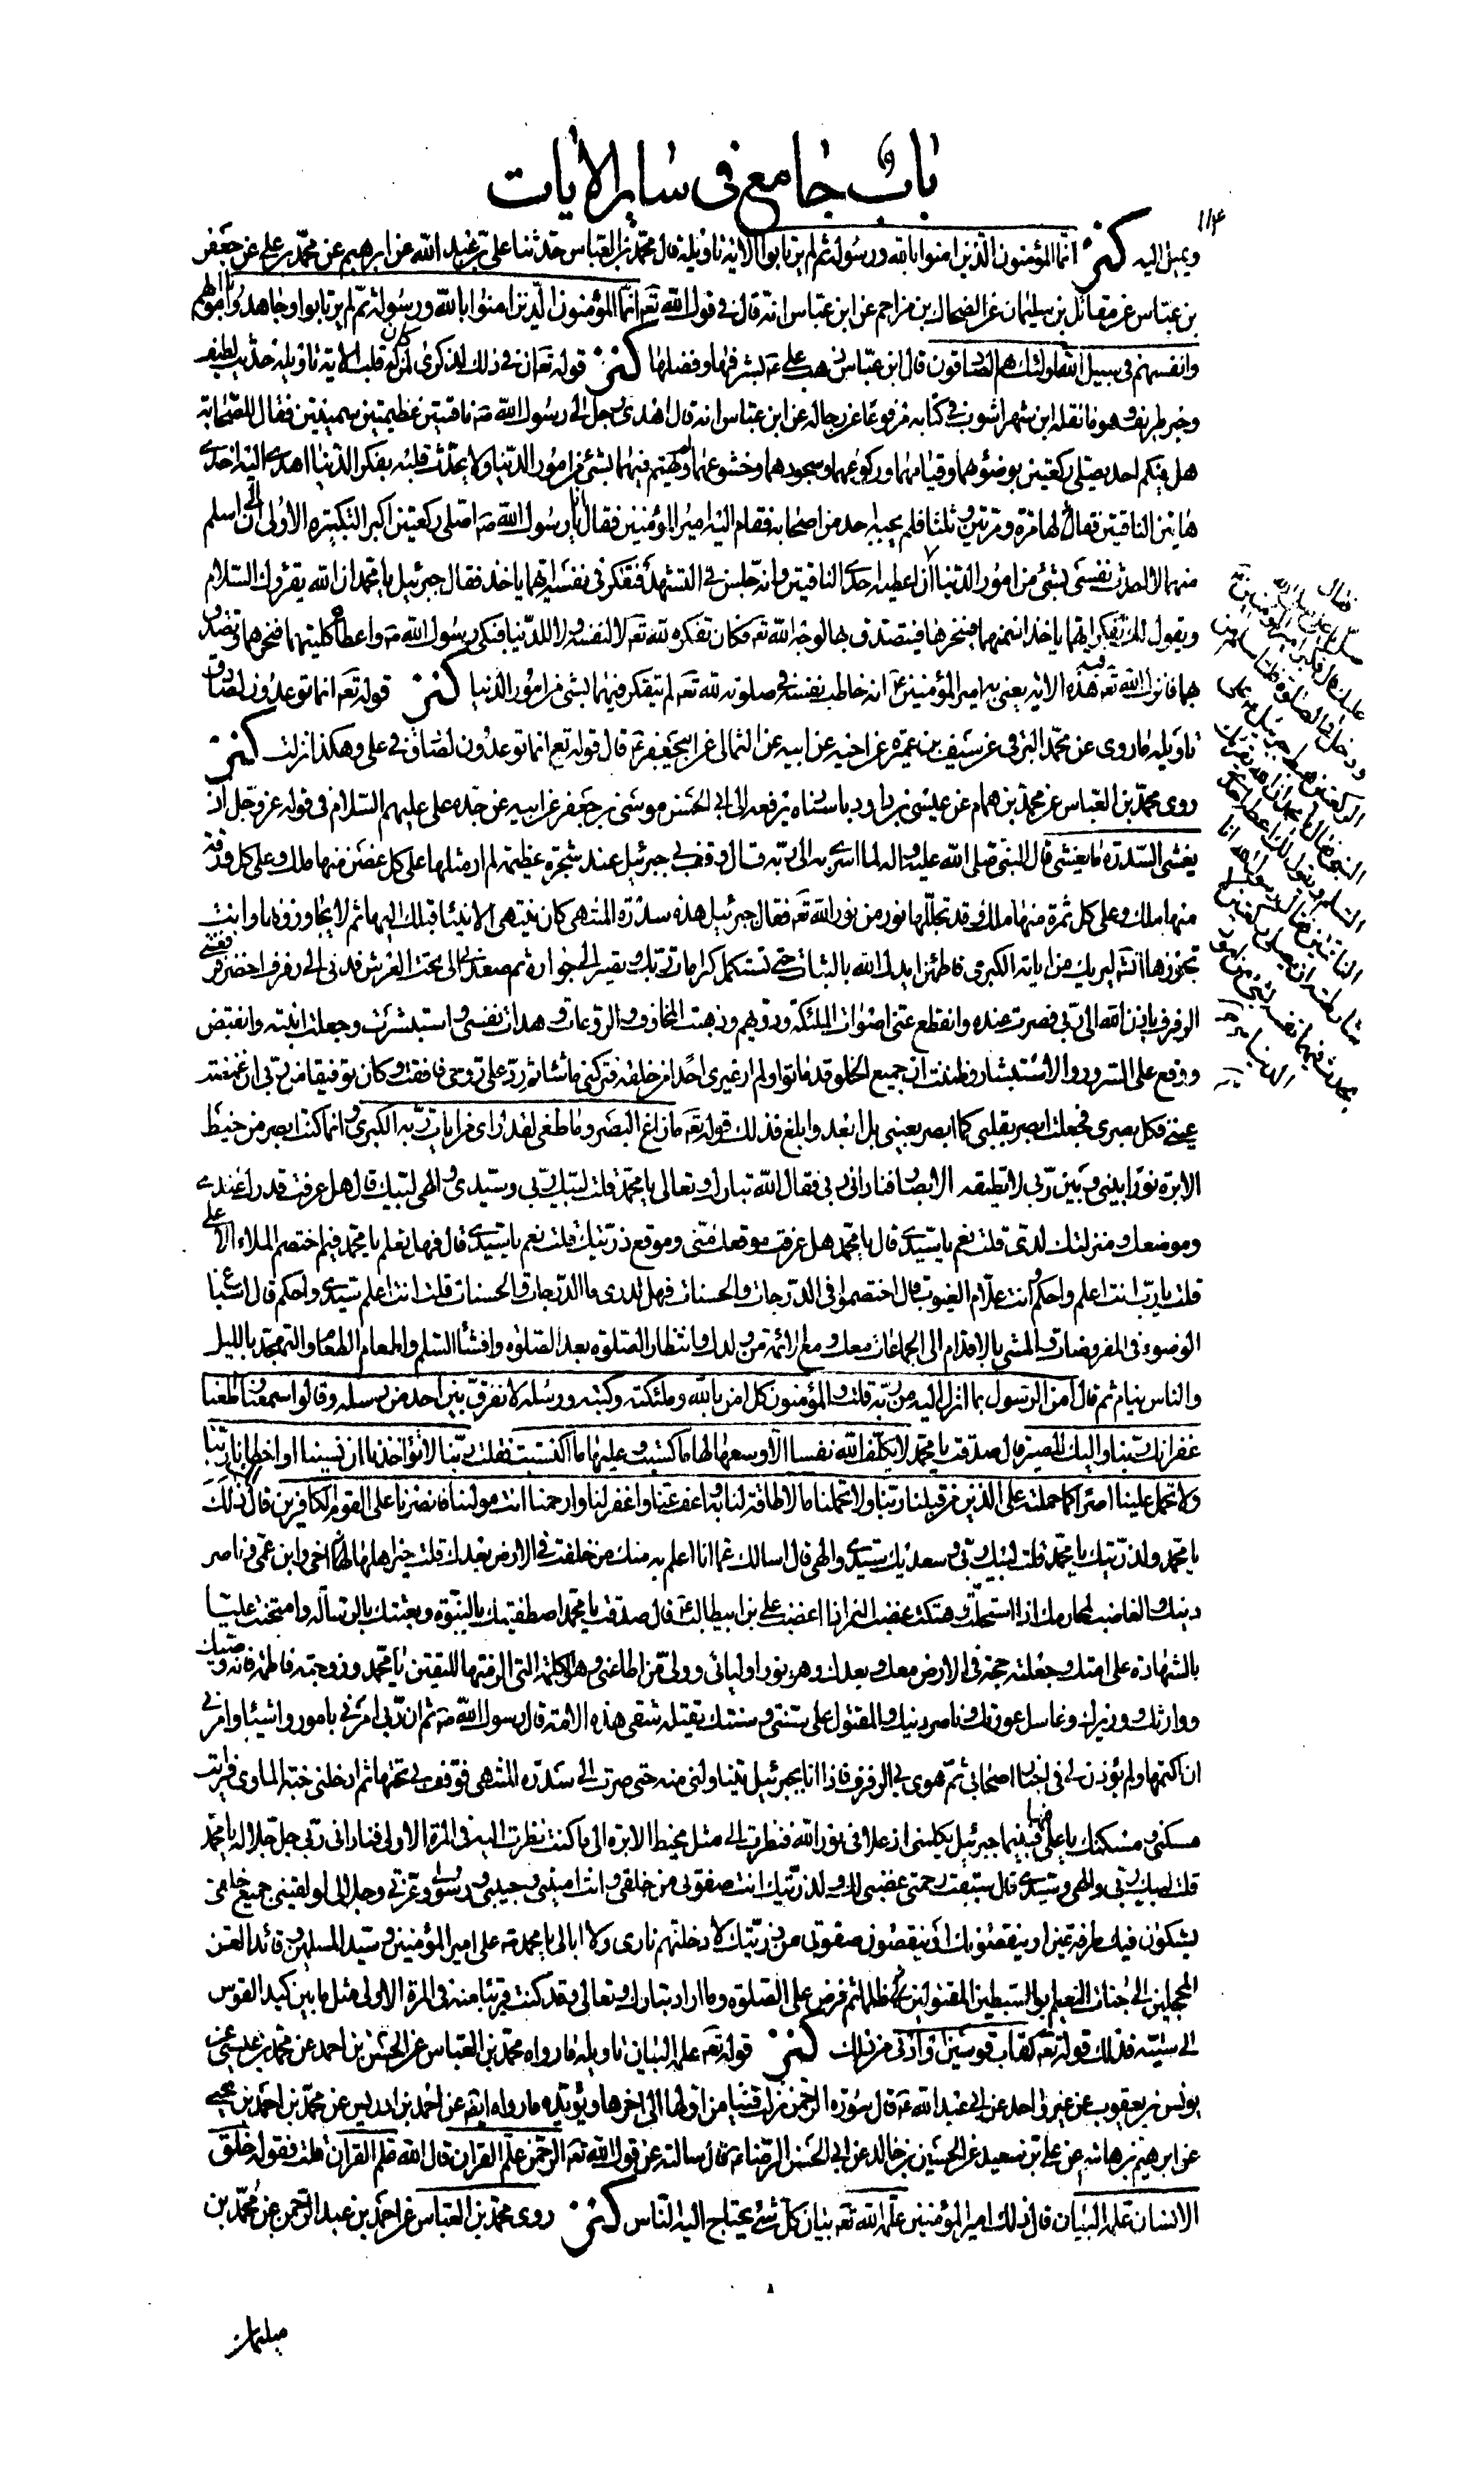 باب جامع في ساير الايات
١١٤
ويميل اليه كنز انما المؤمنون الذين امنوا بالله ورسوله ثم لم يرتابوا الاية تاويله قال محمد بن العباس حدثنا علي بن عبد الله عن ابرهيم بن محمد عن علي عن جعفر
بن عباس عن مقاتل بن سليمان عن الضحاك بن مزاحم عن ابن عباس انه قال في قول الله تعه انما المؤمنون الذين امنوا بالله ورسوله ثم لم يرتابوا وجاهدوا باموالهم
وانفسهم في سبيل الله اولئك هم الصادقون قال ابن عباس ذهب علي عه بشرفها وفضلها كنز قوله تعه ان في ذلك لذكرى لمن كان له قلب الاية تاويله حديث لطيف
وخبر طريف وهو ما نقله ابن شهراشوب في كتابه مرفوعا عن رجاله عن ابن عباس انه قال اهدى رجل الى رسول الله صه ناقتين عظيمتين سمينتين فقال للصحابة
هل فيكم احد يصلي ركعتين بوضوئهما وقيامهما وركوعهما وسجودهما وخشوعهما ولم يهتم فيهما بشئ من امور الدنيا ولا يحدث قلبه بفكر الدنيا اهدي اليه احدى
هاتين الناقتين فقالها مرة ومرتين وثلثا فلم يجبه احد من اصحابه فقام اليه امير المؤمنين فقال انا يا رسول الله صه اصلي ركعتين اكبر التكبيرة الاولى الى ان اسلم
منهما لا احدث نفسي بشئ من امور الدنيا
ان اعطيه احدى الناقتين وانه جلس في التشهد فتفكر في نفسه ايهما ياخذ فقال جبرئيل يا محمد ان الله يقرؤك السلام
ويقول لك تفكر ايهما ياخذ اسمنهما فينحرها فيتصدق بها لوجه الله تعه فكان تفكره لله تعه لا لنفسه ولا للدنيا فبكى رسول الله صه واعطاه كلتيهما فنحرهما وتصدق
بهما فانزل الله تعه فيه هذه الاية يعني به امير المؤمنين عه انه خاطب نفسه في صلوته لله تعه لم يتفكر فيهما بشئ من امور الدنيا كنز قوله تعه انما توعدون لصادق
تاويله ما روى عن محمد البرقي عن سيف بن عميرة عن اخيه عن ابيه عن الثمالي عن ابي جعفر عه قال قوله تعه انما توعدون لصادق في علي وهكذا نزلت كنز
روى محمد بن العباس عن محمد بن همام عن عيسى بن داود باسناد يرفعه الى ابي الحسن موسى بن جعفر عن ابيه عن جده علي عليهم السلام في قوله عز وجل اذ
يغشى السدرة ما يغشى قال النبي صلى الله عليه واله لما اسري به الى ربه قال وقف بي جبرئيل عند شجرة عظيمة لم ار مثلها على كل غصن منها ملك وعلى كل ورقة
منها ملك وعلى كل ثمرة منها ملك وقد تجللها نور من نور الله تعه فقال جبرئيل هذه سدرة المنتهى كان ينتهي الانبياء قبلك اليها ثم لا يتجاوزوها وانت
تجوزها انشه ليريك من اياته الكبرى فاطمئن ايدك الله بالثبات حتى تستكمل كرامات ربك وتصير الى جواره ثم صعد بي الى تحت العرش فدنى الي رفرف اخضر فرفعني
الرفرف باذن الله الى ربي فصرت عنده وانقطع عني اصوات الملئكة ودويهم وذهبت المخاوف والروعات وهدات نفسي واستبشرت وجعلت امتد وانقبض
ووقع علي السرور والاستبشار وظننت ان جميع الخلق قد ماتوا ولم ار غيري احدا من خلقه فتركني ما شاء ثم رد علي روحي فافقت وكان توفيقا من ربي ان غمضت
عيني فكل بصري فجعلت ابصر بقلبي كما ابصر بعيني بل ابعد وابلغ فذلك قوله تعه ما زاغ البصر وما طغى لقد راى من ايات ربه الكبرى وانما كنت ابصر من خيط
الابرة نورا بيني وبين ربي لا تطيقه الابصار فناداني ربي فقال الله تبارك وتعالى يا محمد قلت لبيك ربي وسيدي والهي لبيك قال هل عرفت قدرك عندي
وموضعك ومنزلتك لدي قلت نعم يا سيدي قال يا محمد هل عرفت موقعك مني وموقع ذريتك قلت نعم يا سيدي قال فهل تعلم يا محمد فيم اختصم الملاء الاعلى
قلت يا رب انت اعلم واحكم وانت علام الغيوب قال اختصموا في الدرجات والحسنات فهل تدري ما الدرجات والحسنات قلت انت اعلم سيدي واحكم قال اسباغ
الوضوء في المفروضات والمشي بالاقدام الى الجماعات معك ومع الائمة من ولدك وانتظار الصلوة بعد الصلوة وافشاء السلم واطعام الطعام والتهجد بالليل
والناس نيام ثم قال امن الرسول بما انزل اليه من ربه قلت والمؤمنون كل امن بالله وملئكته وكتبه ورسله لا نفرق بين احد من رسله وقالوا سمعنا واطعنا
غفرانك ربنا واليك المصير قال صدقت يا محمد لا يكلف الله نفسا الا وسعها لها ما كسبت وعليها ما اكتسبت فقلت ربنا لا تؤاخذنا ان نسينا او اخطانا ربنا
ولا تحمل علينا اصرا كما حملته على الذين من قبلنا ربنا ولا تحملنا ما لا طاقة لنا به واعف عنا واغفر لنا وارحمنا انت مولينا فانصرنا على القوم الكافرين قال ذلك لك
يا محمد ولذريتك يا محمد قلت لبيك ربي وسعديك سيدي والهي قال اسالك عما انا اعلم به منك من خلفت في الارض بعدك قلت خير اهلها لها اخي وابن عمي وناصر
دينك والغاضب لمحارمك اذا استحلت وهتكت غضب النمر اذا اغضب علي بن ابيطالب عه قال صدقت يا محمد اصطفيتك بالنبوة وبعثتك بالرسالة وامتحنت عليا
بالشهادة على امتك وجعلته حجة في الارض معك وبعدك وهو نور اوليائي وولي من اطاعني وهو الكلمة التي الزمتها المتقين يا محمد وزوجته فاطمة فانه وصيك
ووارثك ووزيرك وغاسل عورتك وناصر دينك والمقتول على سنتي وسنتك يقتله شقي هذه الامة قال رسول الله صه ثم ان ربي امرني بامور واشياء وامرني
ان اكتمها ولم يؤذن لي في اخبار اصحابي ثم هوى بي الرفرف فاذا انا بجبرئيل يتناولني منه حتى صرت الى سدرة المنتهى فوقف بي تحتها ثم ادخلني جنة الماوى فرايت
مسكني ومسكنك يا علي فيها فبينما جبرئيل يكلمني اذ علاني نور الله فنظرت الى مثل مخيط الابرة الى ما كنت نظرت اليه في المرة الاولى فناداني ربي جل جلاله يا محمد
قلت لبيك ربي والهي وسيدي قال سبقت رحمتي غضبي لك ولذريتك انت صفوتي من خلقي وانت اميني وحبيبي ورسولي وعزتي وجلالي لو لقيني جميع خلقي
يشكون فيك طرفة عين او ينقصونك او ينقصون صفوتي من ذريتك لادخلتهم ناري ولا ابالي يا محمد علي امير المؤمنين وسيد المسلمين وقائد الغر
المحجلين الى جنات النعيم ابو السبطين المقتولين ظلما ثم فرض علي الصلوة وما اراد تبارك وتعالى وقد كنت قريبا منه في المرة الاولى مثل ما بين كبد القوس
الى سيته فذلك قوله تعه كقاب قوسين او ادنى من ذلك كنز قوله تعه علمه البيان تاويله ما رواه محمد بن العباس عن الحسن بن احمد عن محمد بن عيسى عن
يونس بن يعقوب عن غير واحد عن ابي عبد الله عه قال سورة الرحمن نزلت فينا من اولها الى اخرها ويؤيده ما رواه ايضه عن احمد بن ادريس عن محمد بن احمد بن يحيى
عن ابرهيم بن هاشم عن علي بن سعيد عن الحسين بن خالد عن ابي الحسن الرضا عه قال سالته عن قول الله تعه الرحمن علم القران قال الله علم القران قلت فقوله خلق
الانسان علمه البيان قال ذلك امير المؤمنين علمه الله تعه بيان كل شئ يحتاج اليه الناس كنز روى محمد بن العباس عن احمد بن عبد الرحمن عن محمد بن
سليمان